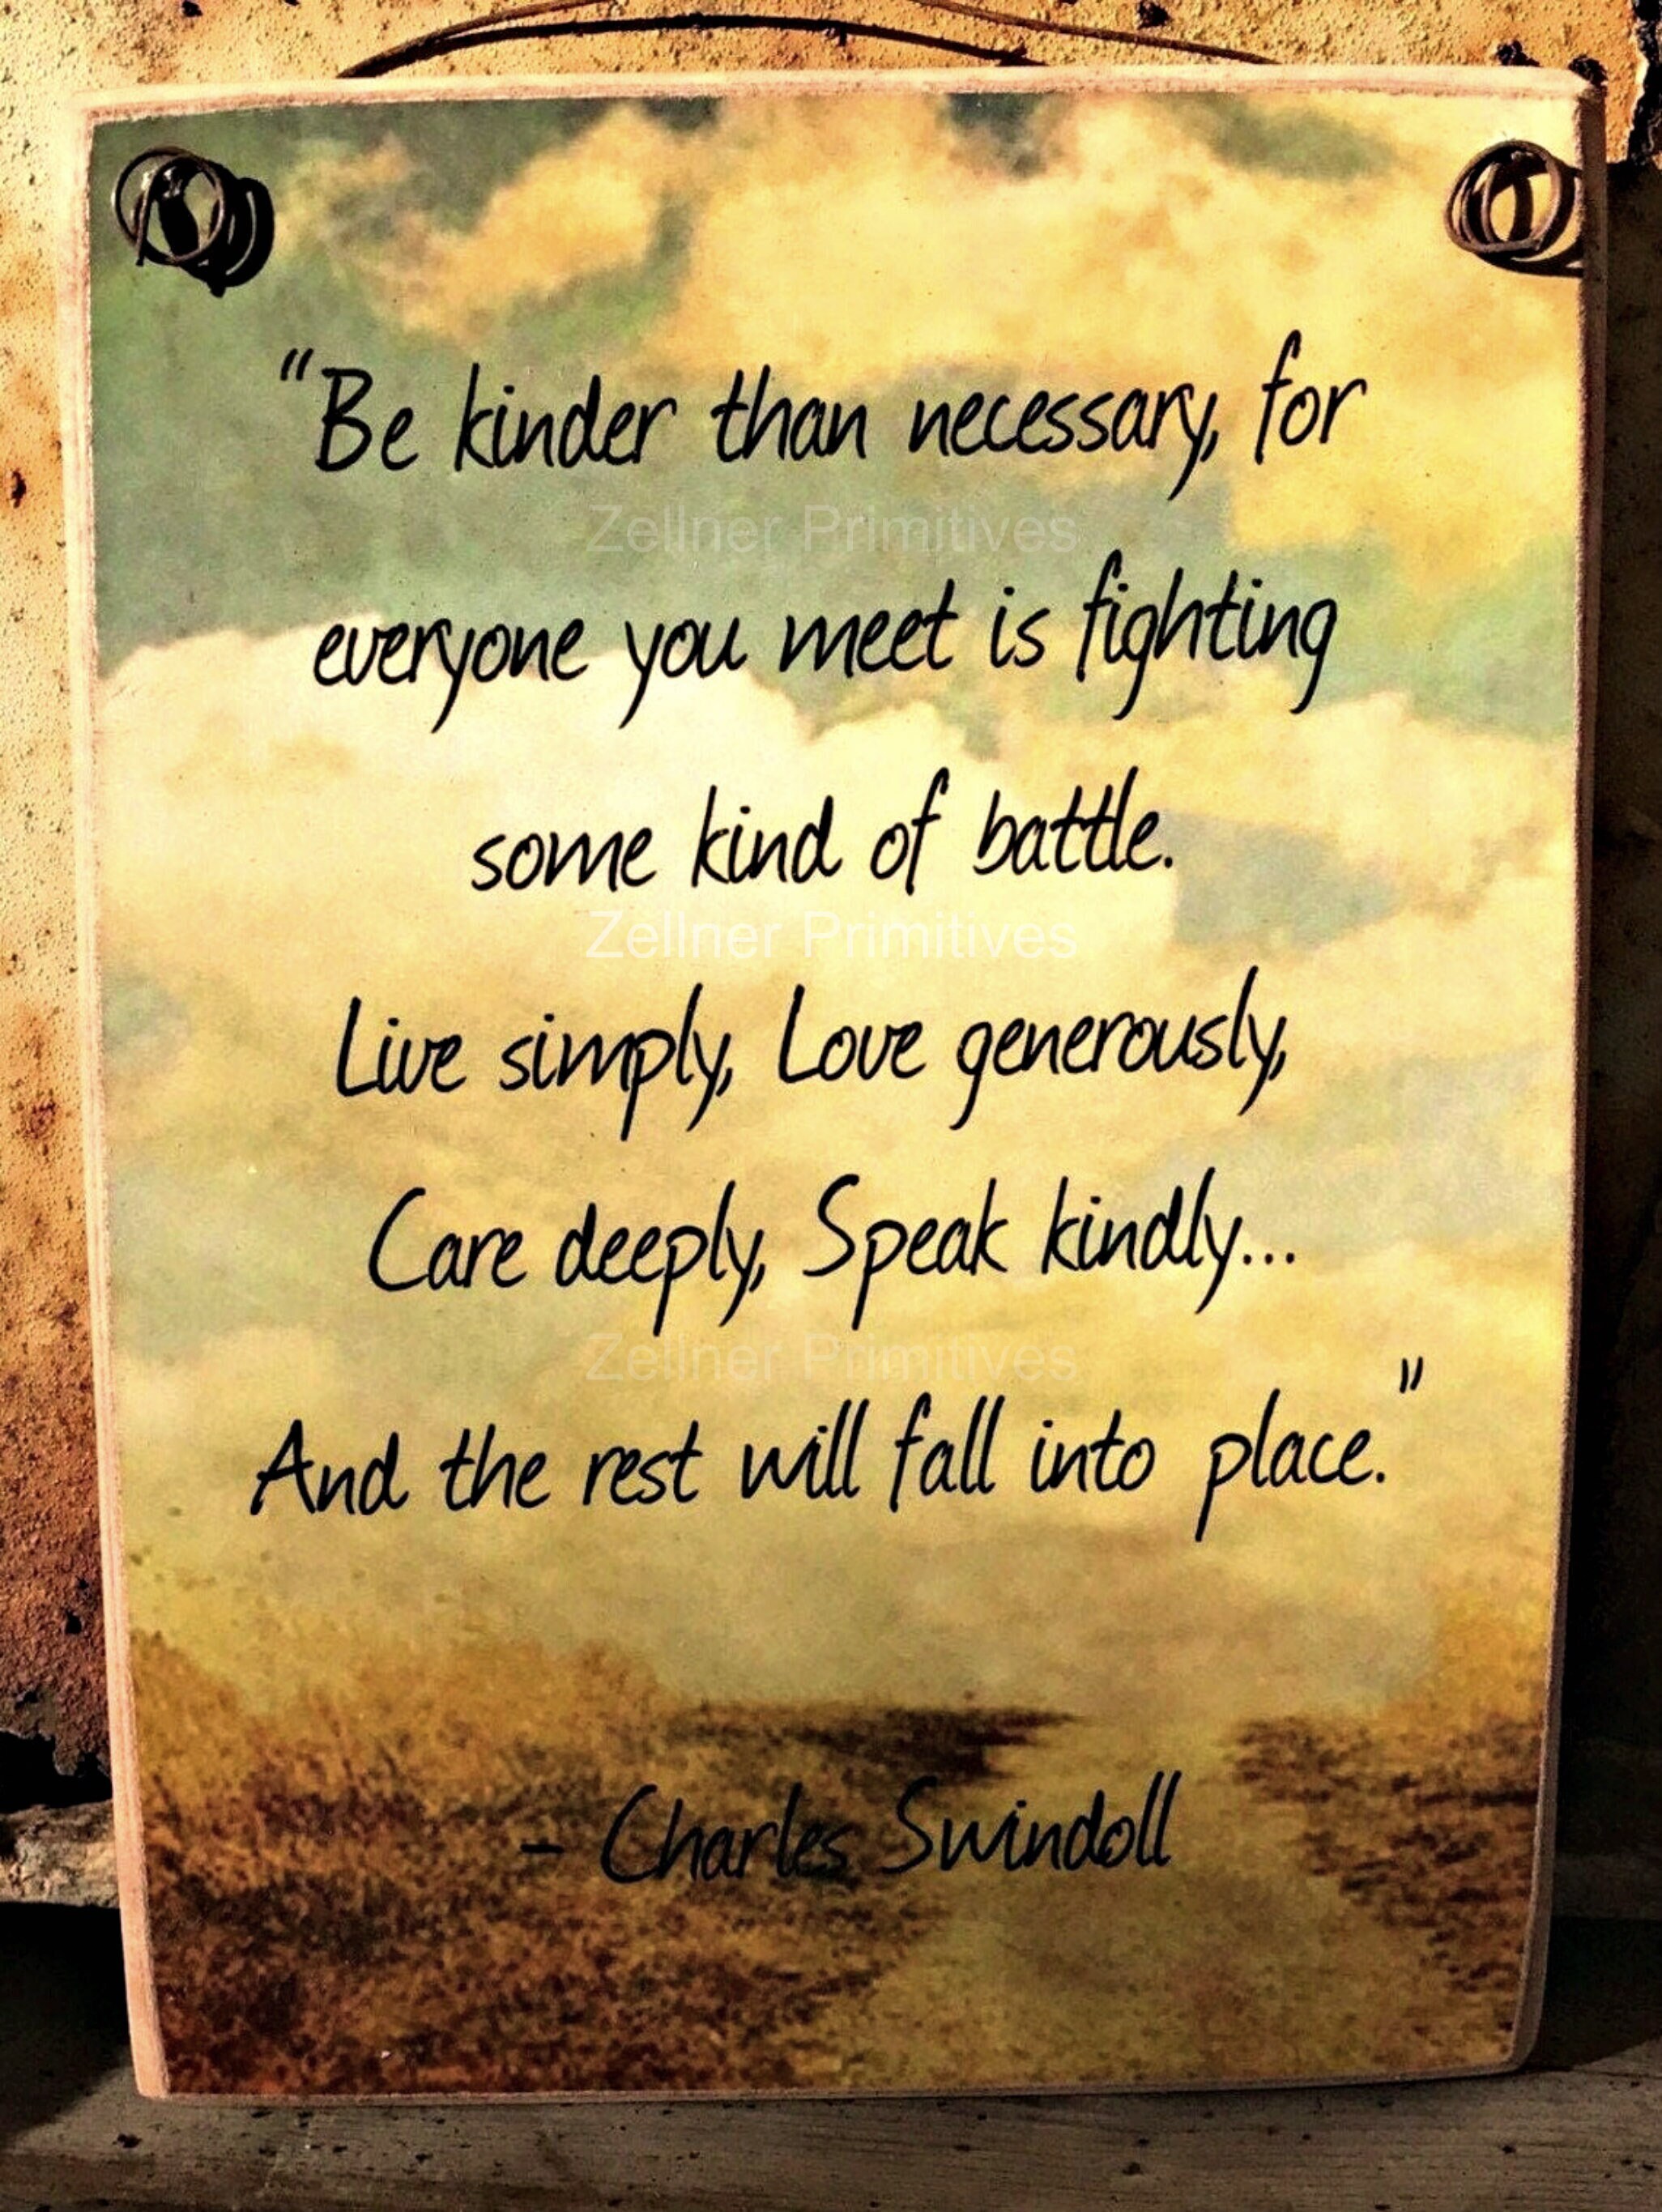 "Be kinder than necessary, for
Zellner Primitives
everyone you meet is fighting
some kind of battle.
Zellner Primitives
Live simply, Love generously,
Care deeply, Speak kindly...
Zellner Primitives
And the rest will fall into place."
- Charles Swindoll